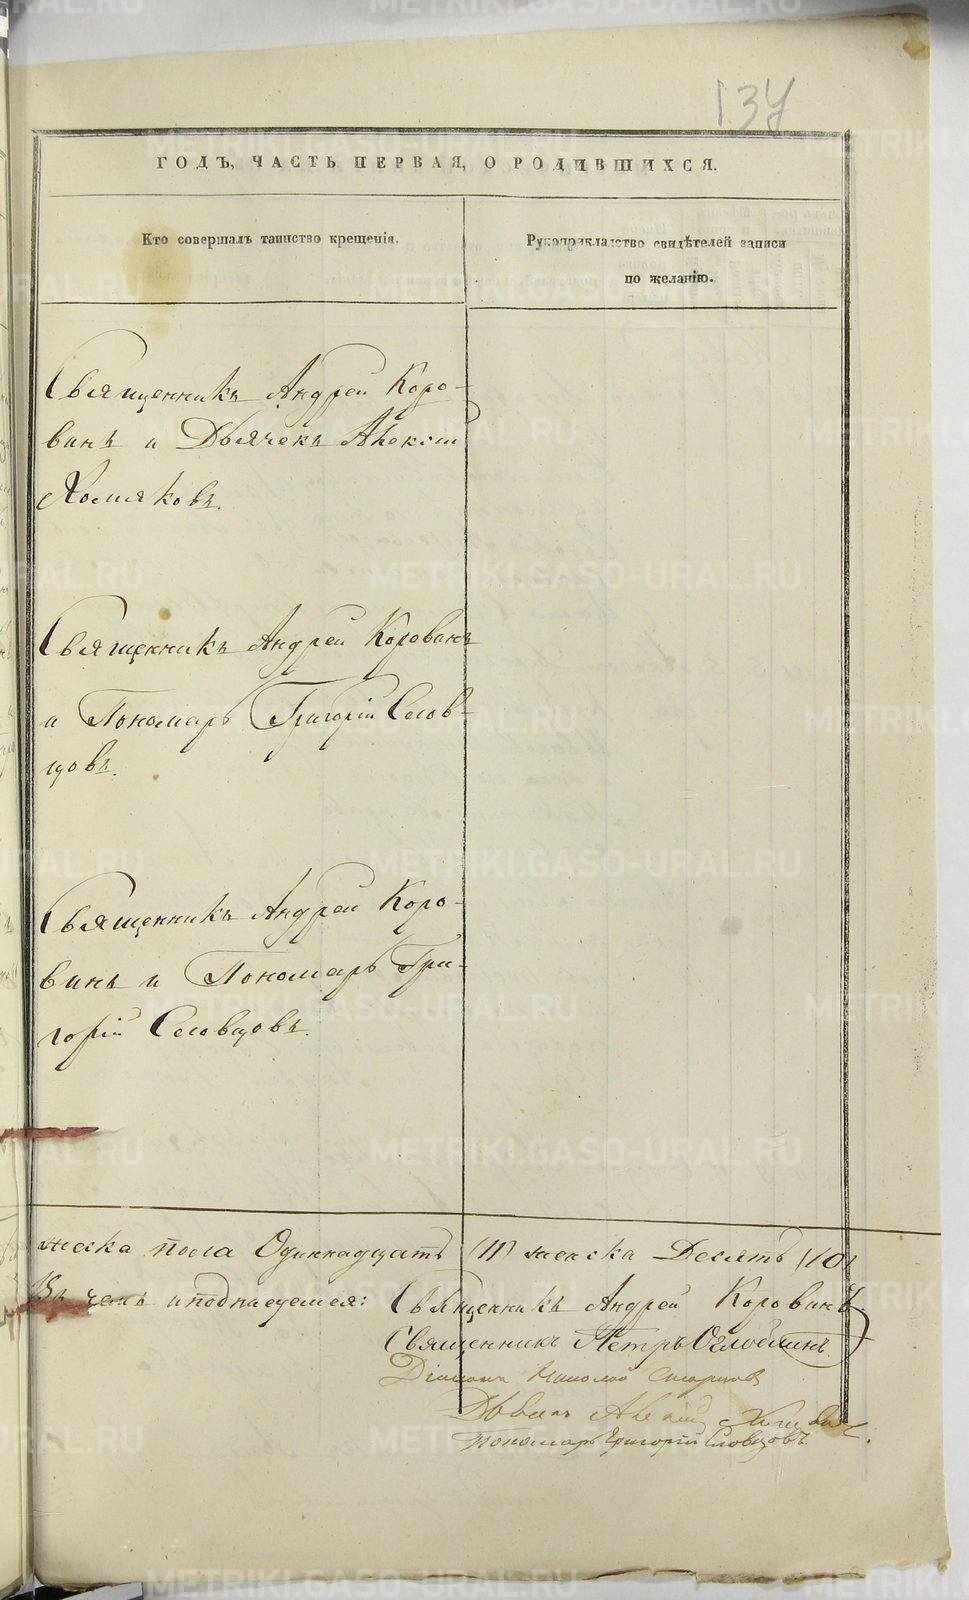 137
ГОДЪ, ЧАСТЬ ПЕРВАЯ, О РОДИВШИХСЯ.
Кто совершалъ таинство крещенія.
Рукоприкладство свидѣтелей записи
по желанію.
Священникъ Андрей Коро-
винъ и Дьячекъ Алексій
Хомяковъ.
Священникъ Андрей Коровинъ
и Пономарь Григорій Слов-
цовъ.
Священникъ Андрей Коро-
винъ и Пономарь Гри-
горій Словцовъ.
мужеска пола Одиннадцать (11) женска Десять (10)
Въ чемъ и подписуемся: Священникъ Андрей Коровинъ
Священникъ Петръ Оглоблинъ
Діаконъ Николай
Дьячекъ Алексій Хомяковъ.
Пономарь Григорій Словцовъ
METRIKI.GASO-URAL.RU